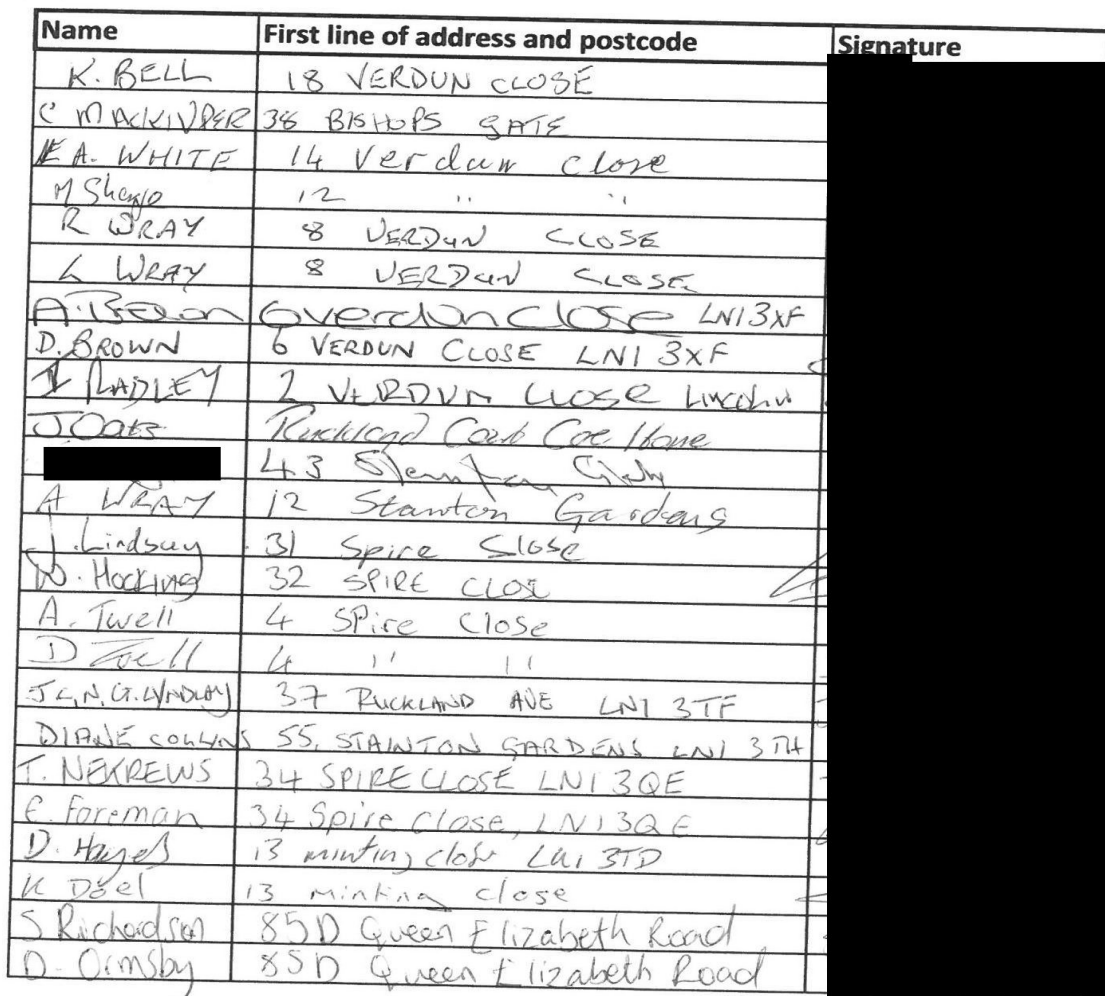 Name First line of address and postcode Signature
K. BELL 18 VERDUN CLOSE
C MACKINDER 38 BISHOPS GATE
E A. WHITE 14 Verdun Close
M Sharpe 12 " "
R WRAY 8 VERDUN CLOSE
L WRAY 8 VERDUN CLOSE
A. Brown 6 Verdun Close LN1 3XF
D. BROWN 6 VERDUN CLOSE LN1 3XF
RADLEY 2 VERDUN CLOSE Lincoln
J. Oats Ruckland Court Care Home
43
A WRAY 12 Stanton Gardens
J. Lindsay 31 Spire Close
W. Hocking 32 SPIRE CLOSE
A. Twell 4 SPire Close
D Twell 4 " "
LYNDLAY 37 RUCKLAND AVE LN1 3TF
DIANE COLLINS 55. STAINTON GARDENS LN1 3TH
T. NEKREWS 34 SPIRE CLOSE LN1 3QE
E. Foreman 34 Spire Close, LN1 3QE
D. Hayes 13 minting close LN1 3TD
K Doel 13 Minting close
S Richardson 85D Queen Elizabeth Road
D. Ormsby 85D Queen Elizabeth Road